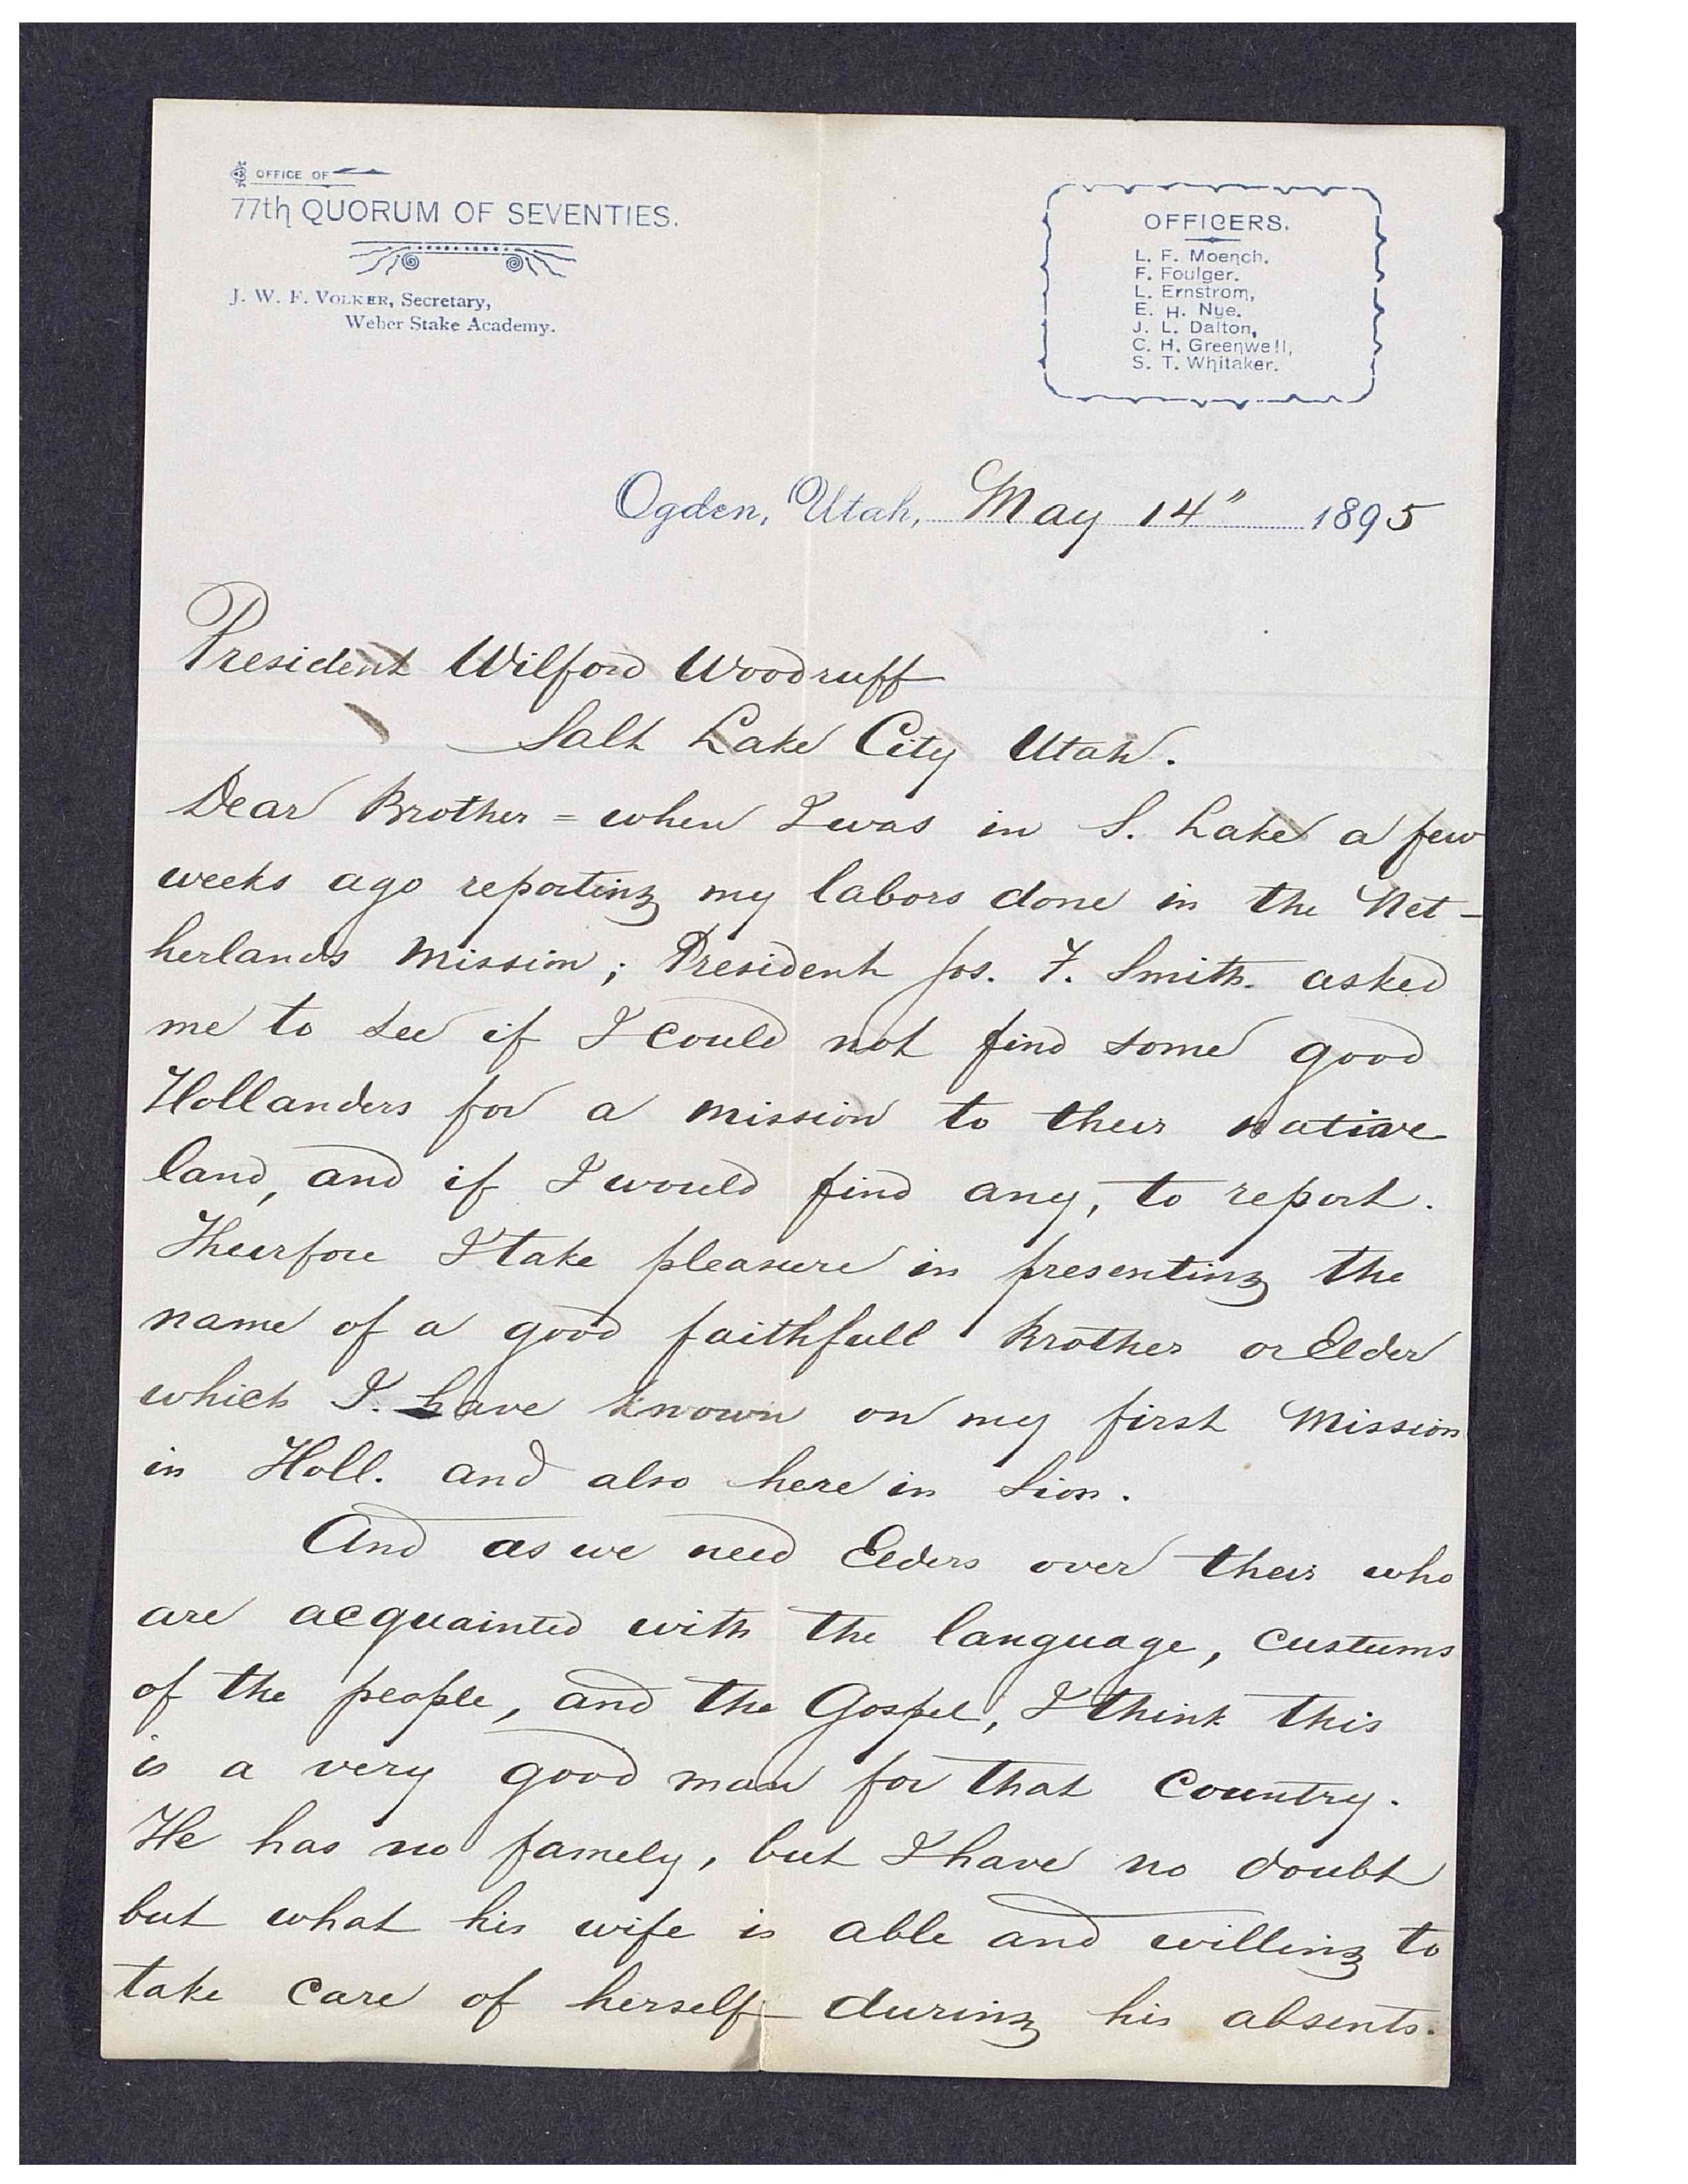 OFFICE OF
77th QUORUM OF SEVENTIES.
J. W. F. VOLKER, Secretary,
Weber Stake Academy.
OFFICERS.
L. F. Moench.
F. Foulger.
L. Ernstrom,
E. H. Nye.
J. L. Dalton,
C. H. Greenwell,
S. T. Whitaker.
Ogden, Utah, May 14" 1895
President Wilford Woodruff
Salt Lake City Utah.
Dear Brother = when I was in S. Lake a few
weeks ago reporting my labors done in the Net-
herlands Mission; President Jos. F. Smith. asked
me to see if I could not find some good
Hollanders for a mission to their native
land, and if I would find any, to report.
Theirfore I take pleasure in presenting the
name of a good faithfull Brother or Elder
which I. have known on my first Mission
in Holl. and also here in Sion.
And as we need Elders over their who
are acquainted with the language, custums
of the people, and the Gospel, I think this
is a very good man for that Country.
He has no famely, but I have no doubt
but what his wife is able and willing to
take care of herself during his absents.